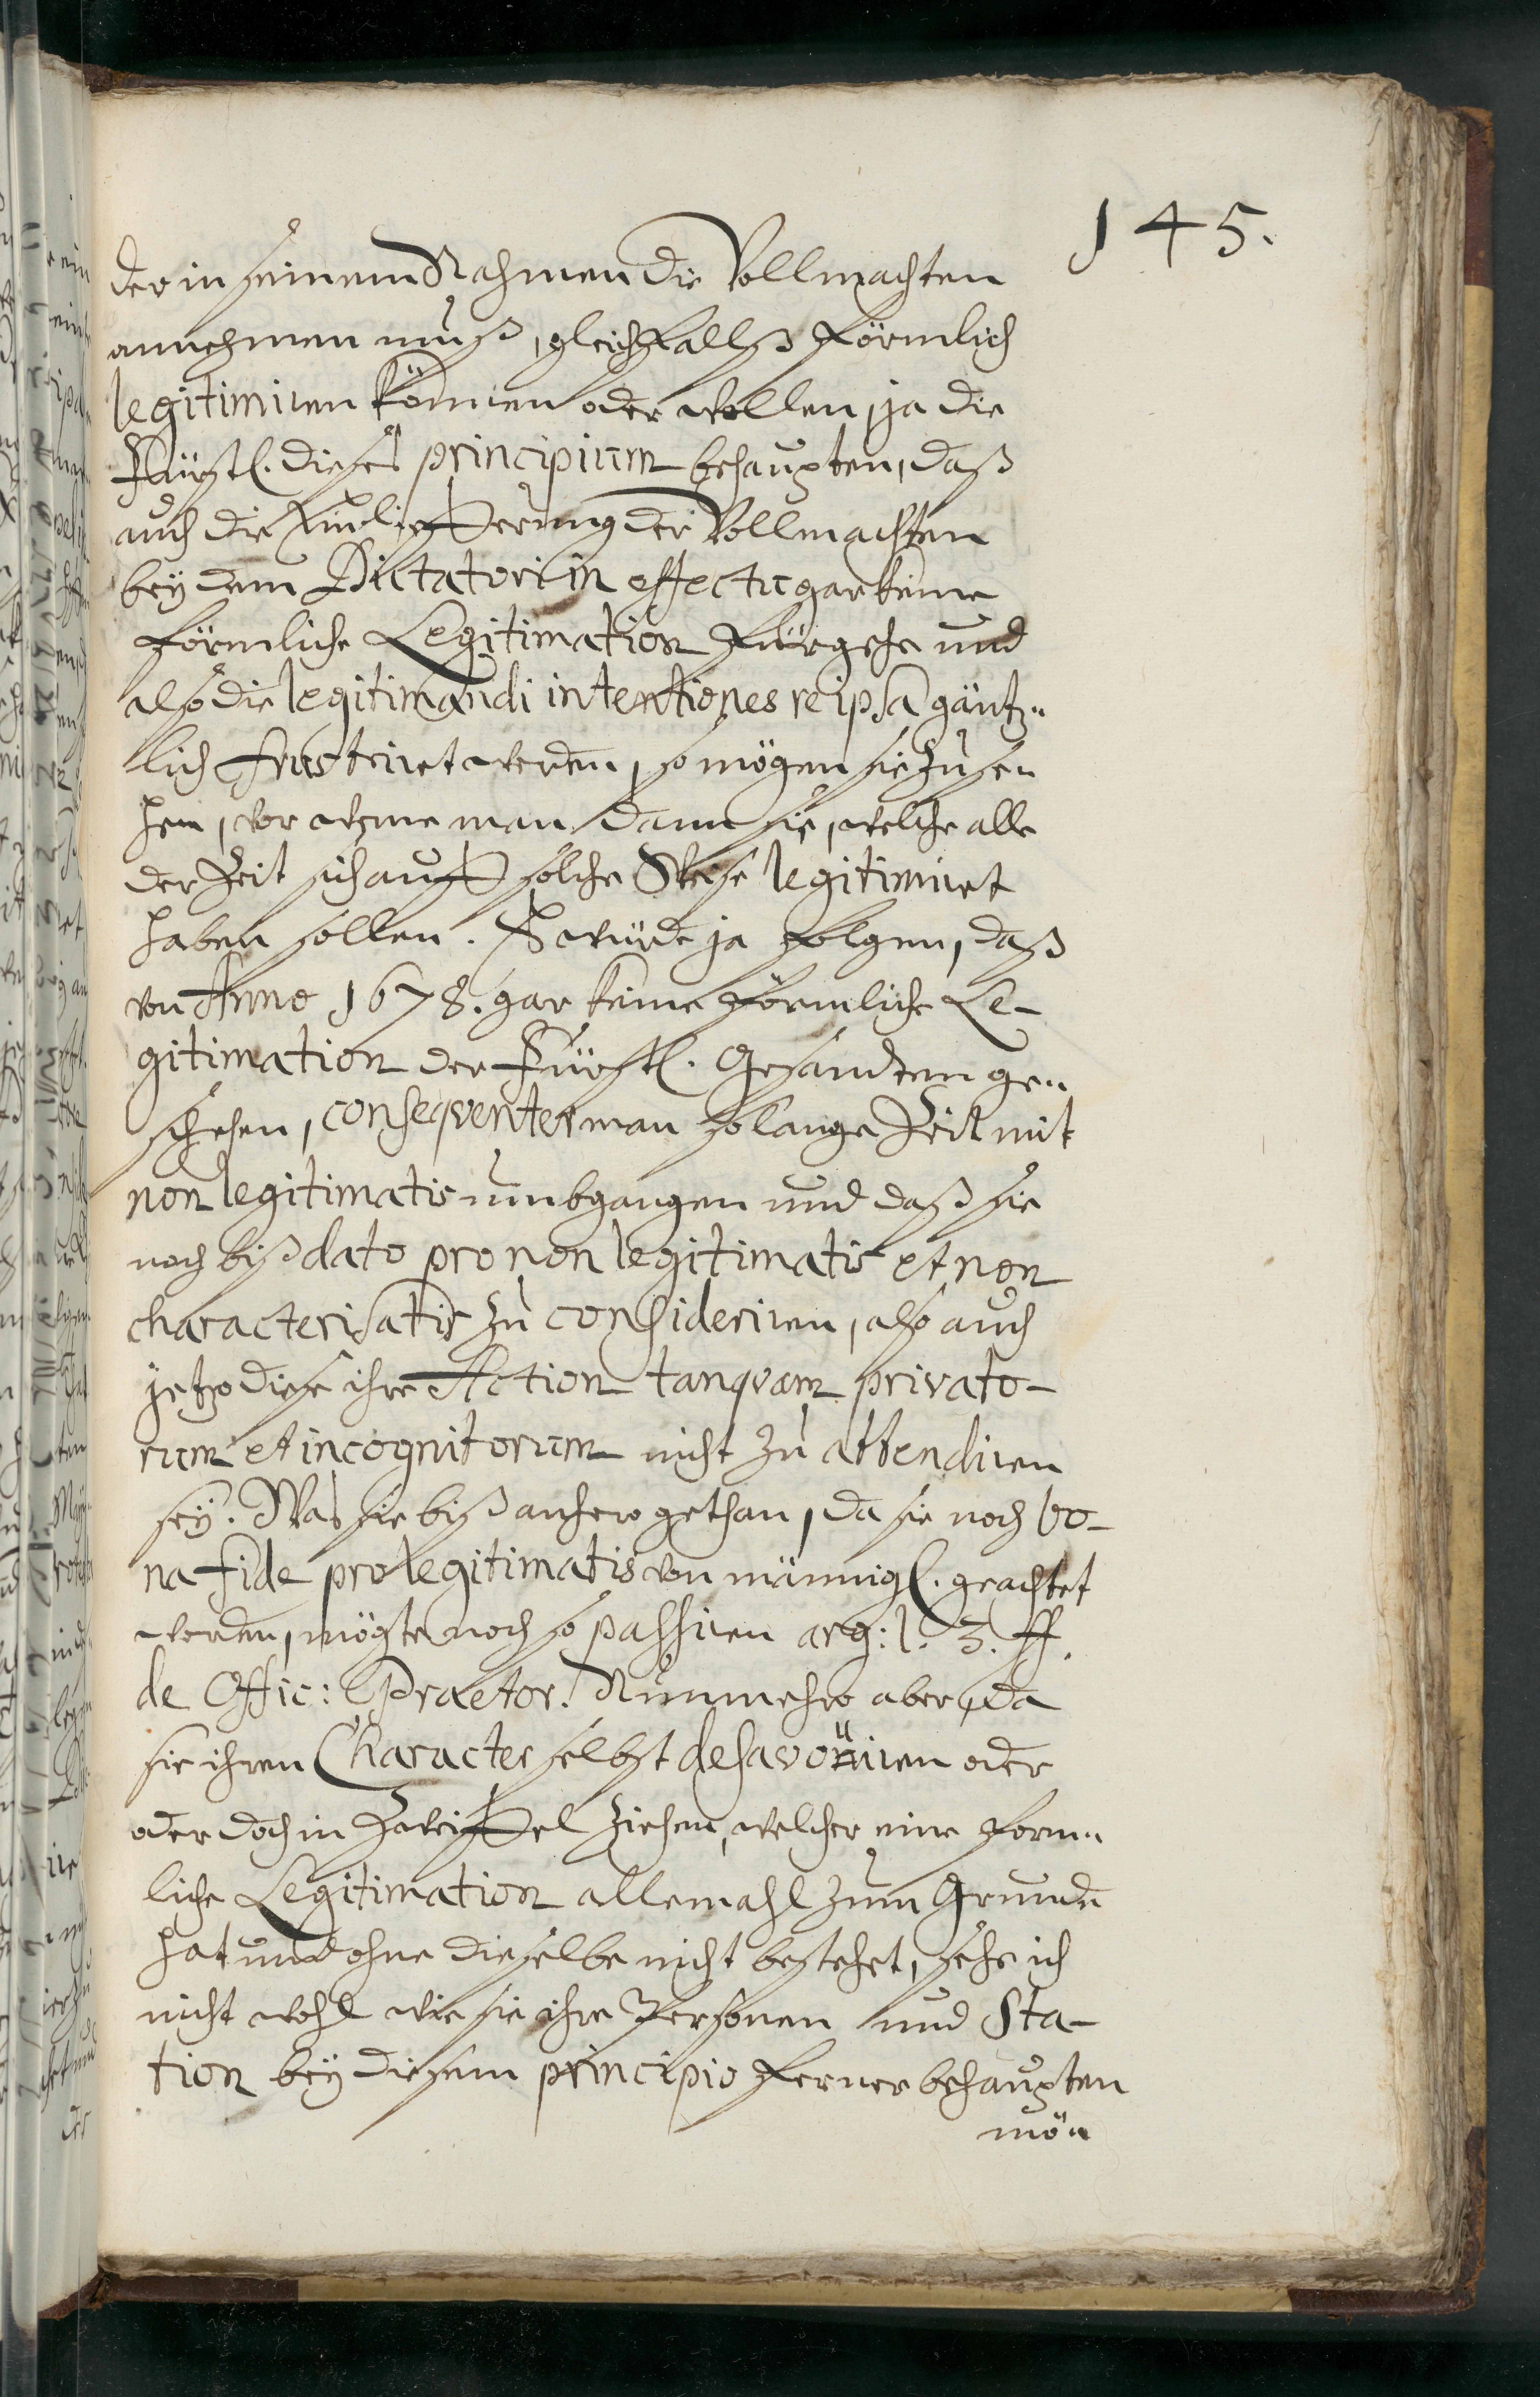 145.
der in seinem Nahmen die Vollmachten
annehmen muß, gleichfallß förmlich
legitimiren können oder wollen, ja die
Fürstl. dieses principium behaupten, daß
auch die Einliefferung der Vollmachten
bey dem Dictatori in effectu gar keine
förmliche Legitimation fürgehe und
also die legitimandi intentiones reipsa gäntz-
lich frustriret werden, so mögen sie zuse-
hen, vor wehme man dann sie, welche alle
der Zeit sich auff solche Weise legitimiret
haben sollen. Es würde ja folgen, daß
von Anno 1678. gar keine förmliche Le-
gitimation der Fürstl. Gesandten ge-
schehen, conseqventer man so lange Zeit mit
non legitimatis umbgangen und daß sie
noch biß dato pro non legitimatis et non
characterisatis zu consideriren, also auch
jetzo diese ihre Action tanqvam privato-
rum et incognitorum nicht zu attendiren
sey. Was sie biß anhero gethan, da sie noch bo-
na fide pro legitimatis von männigl. geachtet
worden, mögte noch so passiren arg: l. 3. ff.
de Offic: Praetor. Nunmehro aber, da
sie ihren Character selbst desavoüiren oder
oder doch in Zweiffel ziehen, welcher eine form-
liche Legitimation allemahl zum Grunde
hat und ohne dieselbe nicht bestehet, sehe ich
nicht wohl wie sie ihre Personen und Sta-
tion bey diesem principio ferner behaupten
mö-